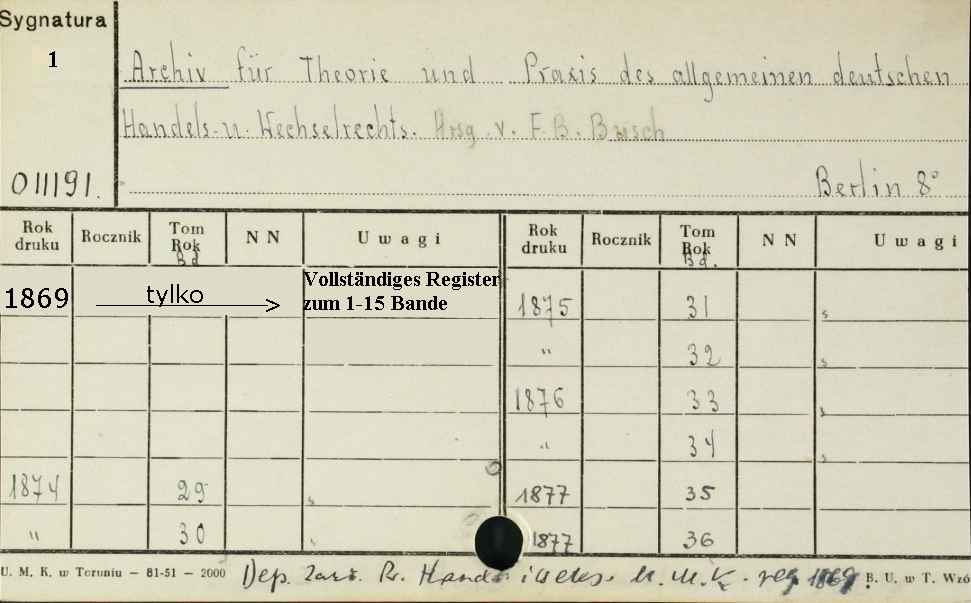 Sygnatura
1
Archiv für Theorie und Praxis des allgemeinen deutschen
Handels- u. Wechselrechts. Hrsg. v. F. B. Busch
011191.
Berlin 8°
Rok druku Rocznik Tom Rok Bd NN Uwagi Rok druku Rocznik Tom Rok Bd. NN Uwagi
1869 tylko Vollständiges Register zum 1-15 Bande 1875 31
" 32
1876 33
" 34
1874 29 1877 35
" 30 1877 36
U. M. K. w Toruniu – 81-51 – 2000 Dep. U. M. K. 1869 B. U. w T. Wzó